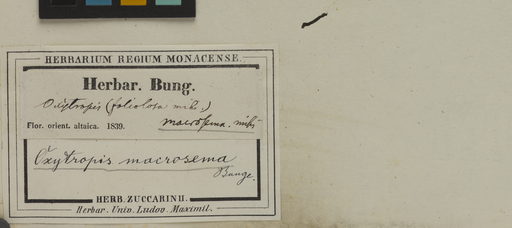 HERBARIUM REGIUM MONACENSE.
Herbar. Bung.
Oxytropis (foliolosa mihi)
Flor. orient. altaica. 1839. macrosema. mihi
Oxytropis macrosema
Bunge.
HERB. ZUCCARINII.
Herbar. Univ. Ludov. Maximil.